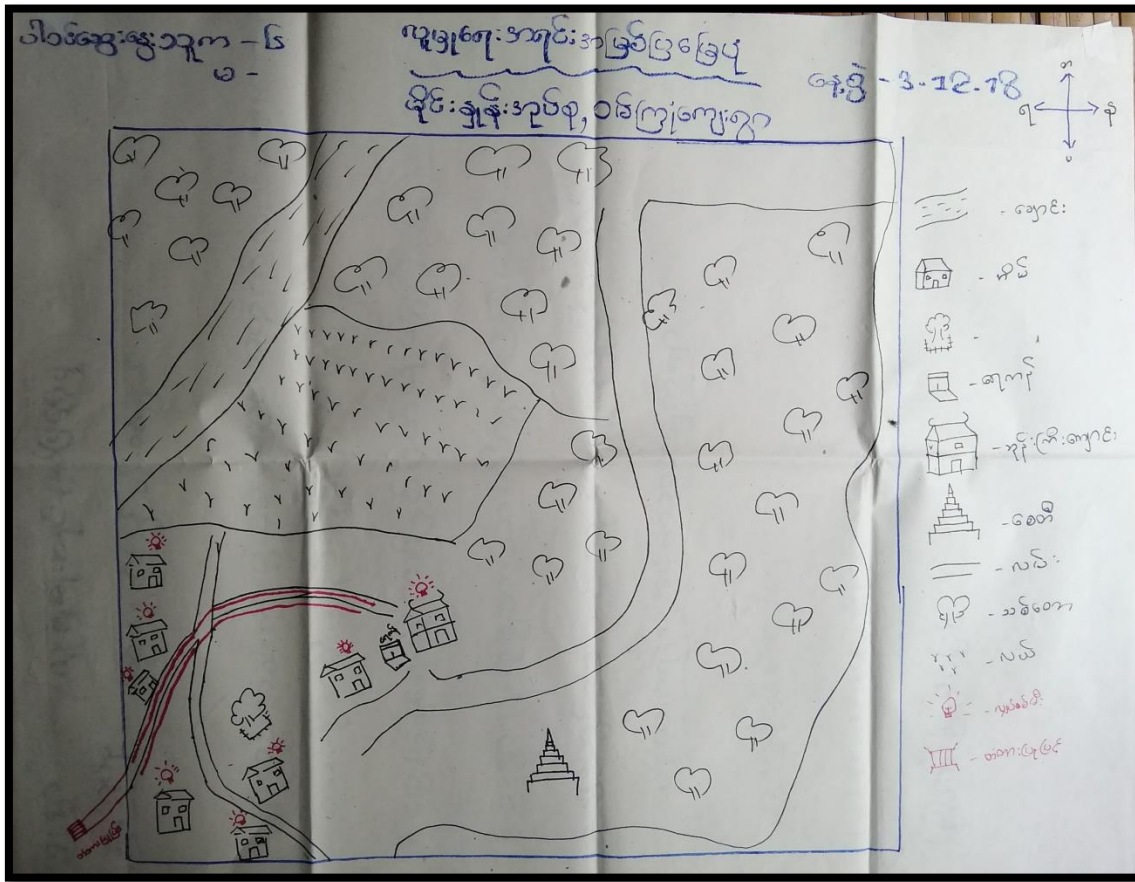 ပါဝင်ဆွေးနွေးသူကျ - ၆
မ -
လူမှုရေးအရင်းအမြစ်ပြမြေပုံ
ခိုင်းနှုန်းအုပ်စု, ဝါးကြုံကျေးရွာ
နေ့စွဲ - 3.12.18
မ
ရ
န
- ချောင်း
- အိမ်
-
- ရေကန်
- ဘုန်းကြီးကျောင်း
- စေတီ
- လမ်း
- သစ်တော
- လယ်
- လျှပ်စစ်မီး
- တံတားပြုပြင်